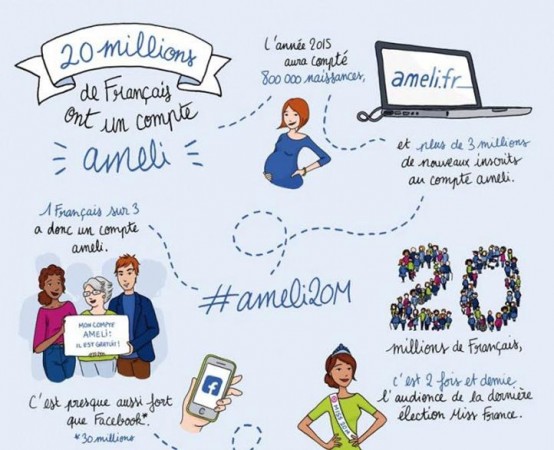 20 millions
de Français
ont un compte
ameli
L'année 2015
aura compté
800 000 naissances,
ameli.fr_
et plus de 3 millions
de nouveaux inscrits
au compte ameli.
1 Français sur 3
a donc un compte
ameli.
MON COMPTE
AMELI:
IL EST GRATUIT!
#ameli20M
20
millions de Français,
c'est 2 fois et demie
l'audience de la dernière
élection Miss France.
C'est presque aussi fort
que Facebook*.
*30 millions
f